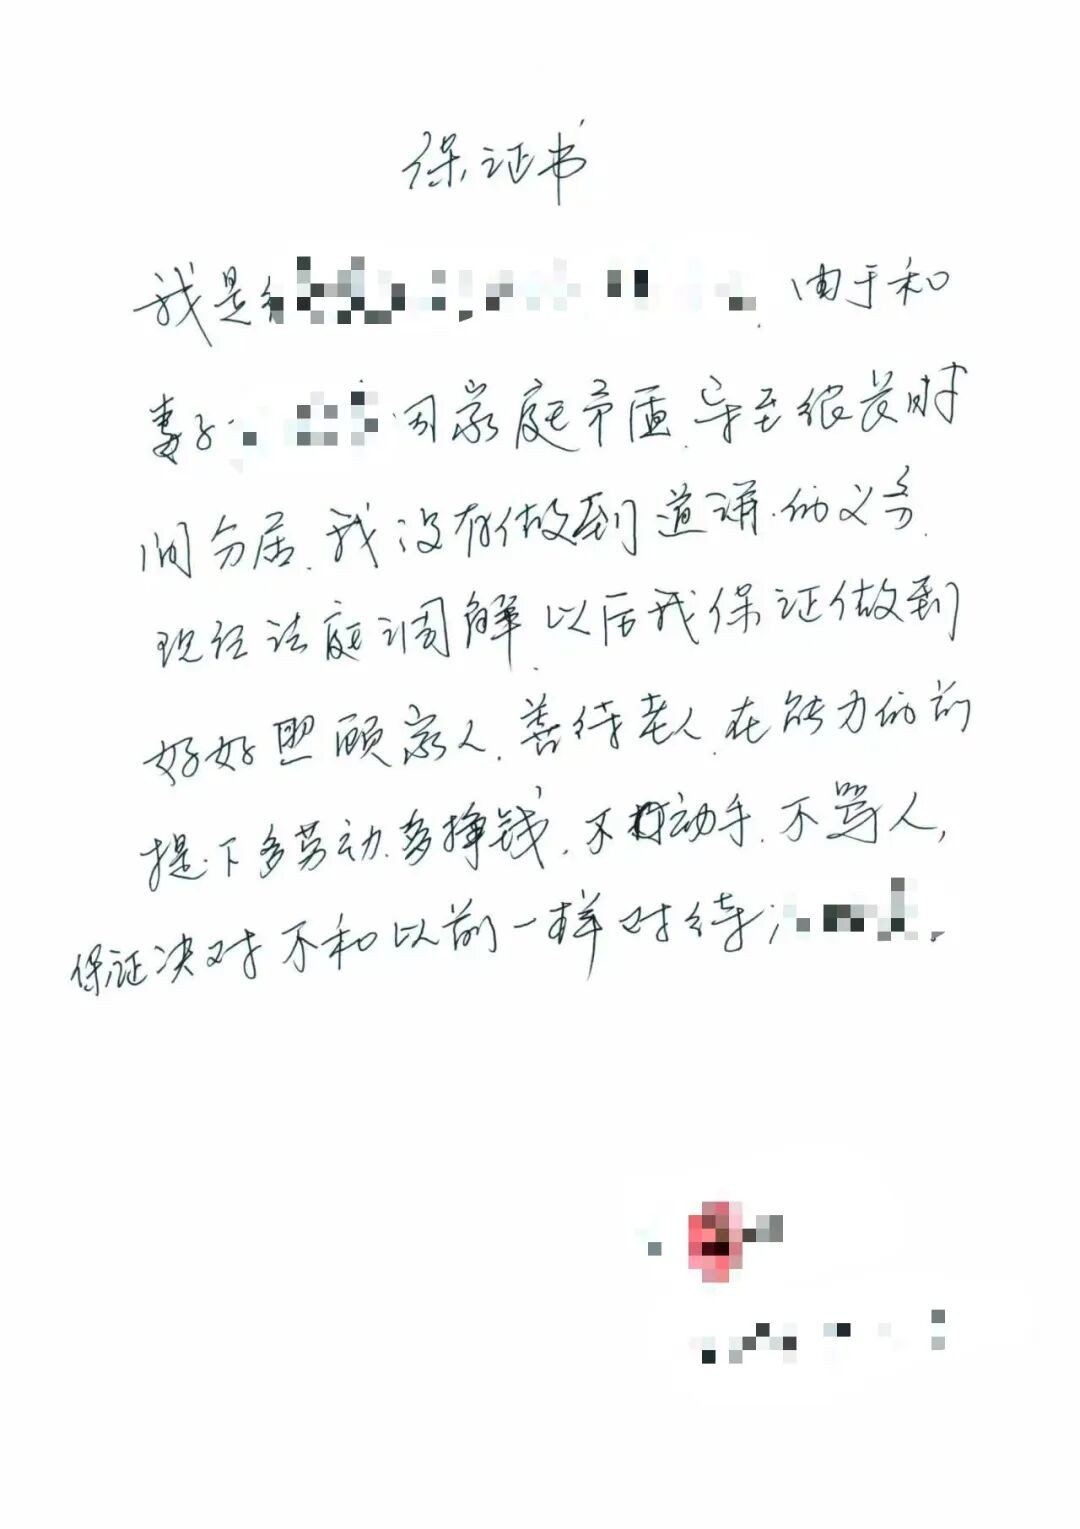 保证书
我是 由于和
妻子 因家庭矛盾.导至很长时
间分居.我没有做到 的义务.
现经法庭调解.以后我保证做到
好好照顾家人.善待老人.在能力的前
提下多劳动.多挣钱.不动手.不骂人,
保证决对不和以前一样对待